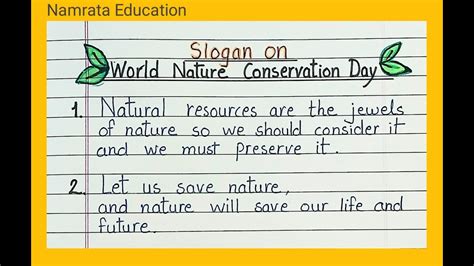 Namrata Education
Slogan on
World Nature Conservation Day
1. Natural resources are the jewels
of nature so we should consider it
and we must preserve it.
2. Let us save nature,
and nature will save our life and
future.